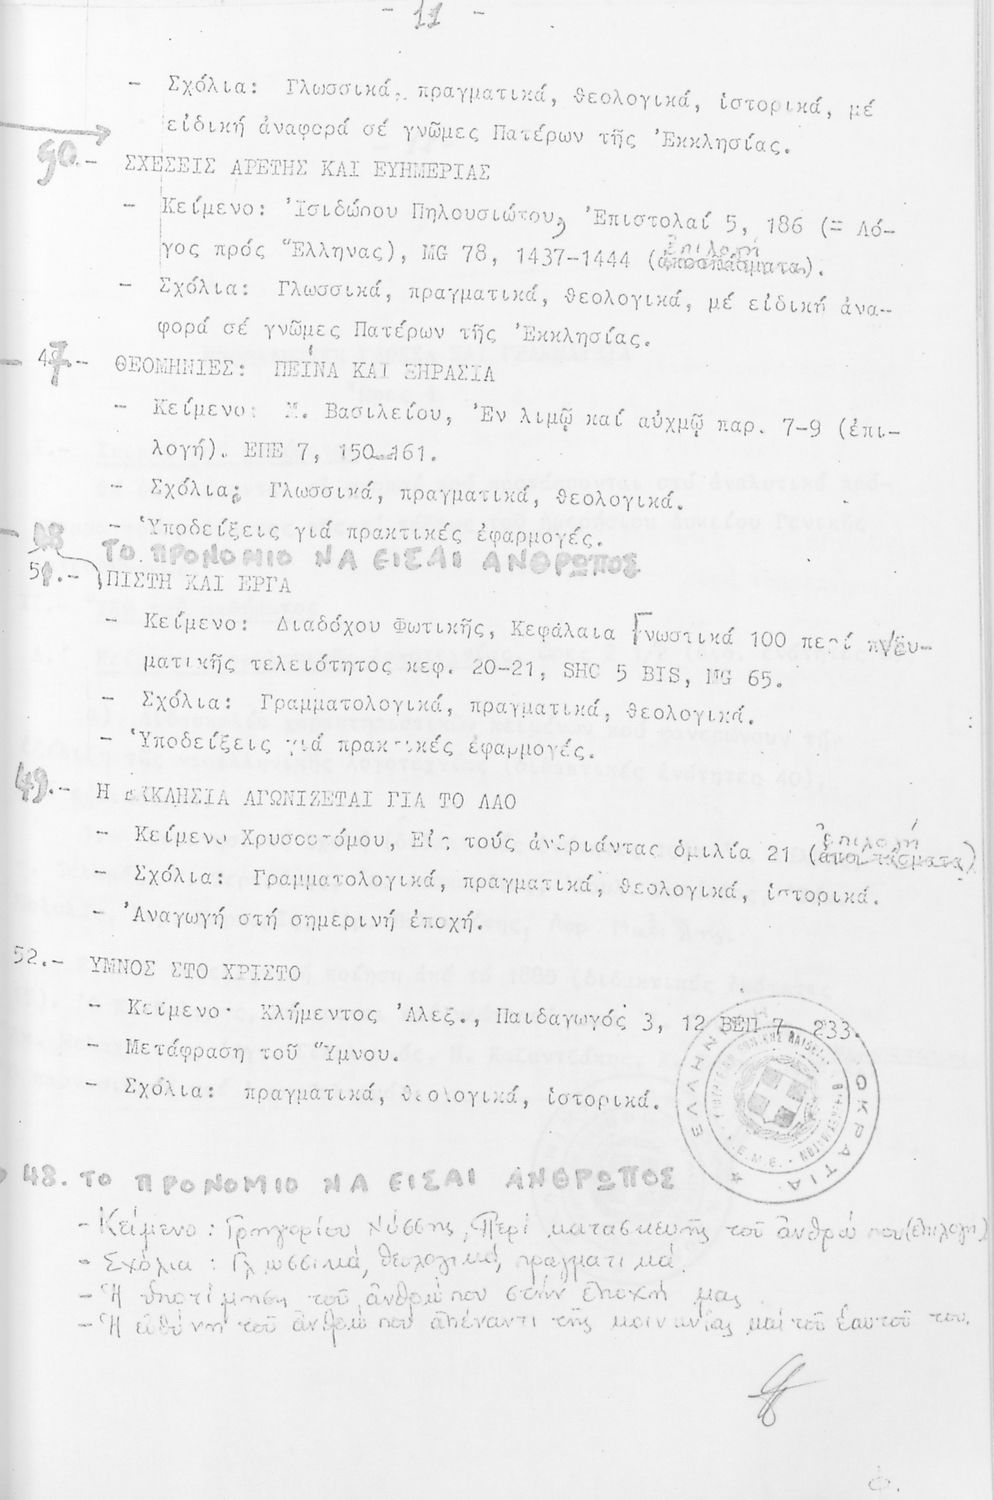 - 11 -
- Σχόλια: Γλωσσικά, πραγματικά, θεολογικά, ἱστορικά, μέ
εἰδική ἀναφορά σέ γνῶμες Πατέρων τῆς Ἐκκλησίας.
50.- ΣΧΕΣΕΙΣ ΑΡΕΤΗΣ ΚΑΙ ΕΥΗΜΕΡΙΑΣ
- Κείμενο: Ἰσιδώρου Πηλουσιώτου, Ἐπιστολαί 5, 186 (= Λό-
γος πρός Ἕλληνας), MG 78, 1437-1444 (ἀποσπάσματα).
ἐπιλογή
- Σχόλια: Γλωσσικά, πραγματικά, θεολογικά, μέ εἰδική ἀνα-
φορά σέ γνῶμες Πατέρων τῆς Ἐκκλησίας.
47.- ΘΕΟΜΗΝΙΕΣ: ΠΕΙΝΑ ΚΑΙ ΞΗΡΑΣΙΑ
- Κείμενο: Μ. Βασιλείου, Ἐν λιμῷ καί αὐχμῷ παρ. 7-9 (ἐπι-
λογή). ΕΠΕ 7, 150-161.
- Σχόλια: Γλωσσικά, πραγματικά, θεολογικά.
- Ὑποδείξεις γιά πρακτικές ἐφαρμογές.
48 ΤΟ ΠΡΟΝΟΜΙΟ ΝΑ ΕΙΣΑΙ ΑΝΘΡΩΠΟΣ
51.- ΠΙΣΤΗ ΚΑΙ ΕΡΓΑ
- Κείμενο: Διαδόχου Φωτικῆς, Κεφάλαια Γνωστικά 100 περί πνευ-
ματικῆς τελειότητος κεφ. 20-21, SHC 5 BIS, MG 65.
- Σχόλια: Γραμματολογικά, πραγματικά, θεολογικά.
- Ὑποδείξεις γιά πρακτικές ἐφαρμογές.
49.- Η ΕΚΚΛΗΣΙΑ ΑΓΩΝΙΖΕΤΑΙ ΓΙΑ ΤΟ ΛΑΟ
- Κείμενο Χρυσοστόμου, Εἰς τούς ἀνδριάντας ὁμιλία 21 (ἀποσπάσματα)
ἐπιλογή
- Σχόλια: Γραμματολογικά, πραγματικά, θεολογικά, ἱστορικά.
- Ἀναγωγή στή σημερινή ἐποχή.
52.- ΥΜΝΟΣ ΣΤΟ ΧΡΙΣΤΟ
- Κείμενο· Κλήμεντος Ἀλεξ., Παιδαγωγός 3, 12 ΒΕΠ 7, 233.
- Μετάφραση τοῦ Ὕμνου.
- Σχόλια: πραγματικά, θεολογικά, ἱστορικά.
48. ΤΟ ΠΡΟΝΟΜΙΟ ΝΑ ΕΙΣΑΙ ΑΝΘΡΩΠΟΣ
- Κείμενο: Γρηγορίου Νύσσης, Περί κατασκευῆς τοῦ ἀνθρώπου (ἐπιλογή)
- Σχόλια: Γλωσσικά, θεολογικά, πραγματικά.
- Ἡ ὑποτίμηση τοῦ ἀνθρώπου στήν ἐποχή μας.
- Ἡ εὐθύνη τοῦ ἀνθρώπου ἀπέναντι τῆς κοινωνίας καί τοῦ ἑαυτοῦ του.